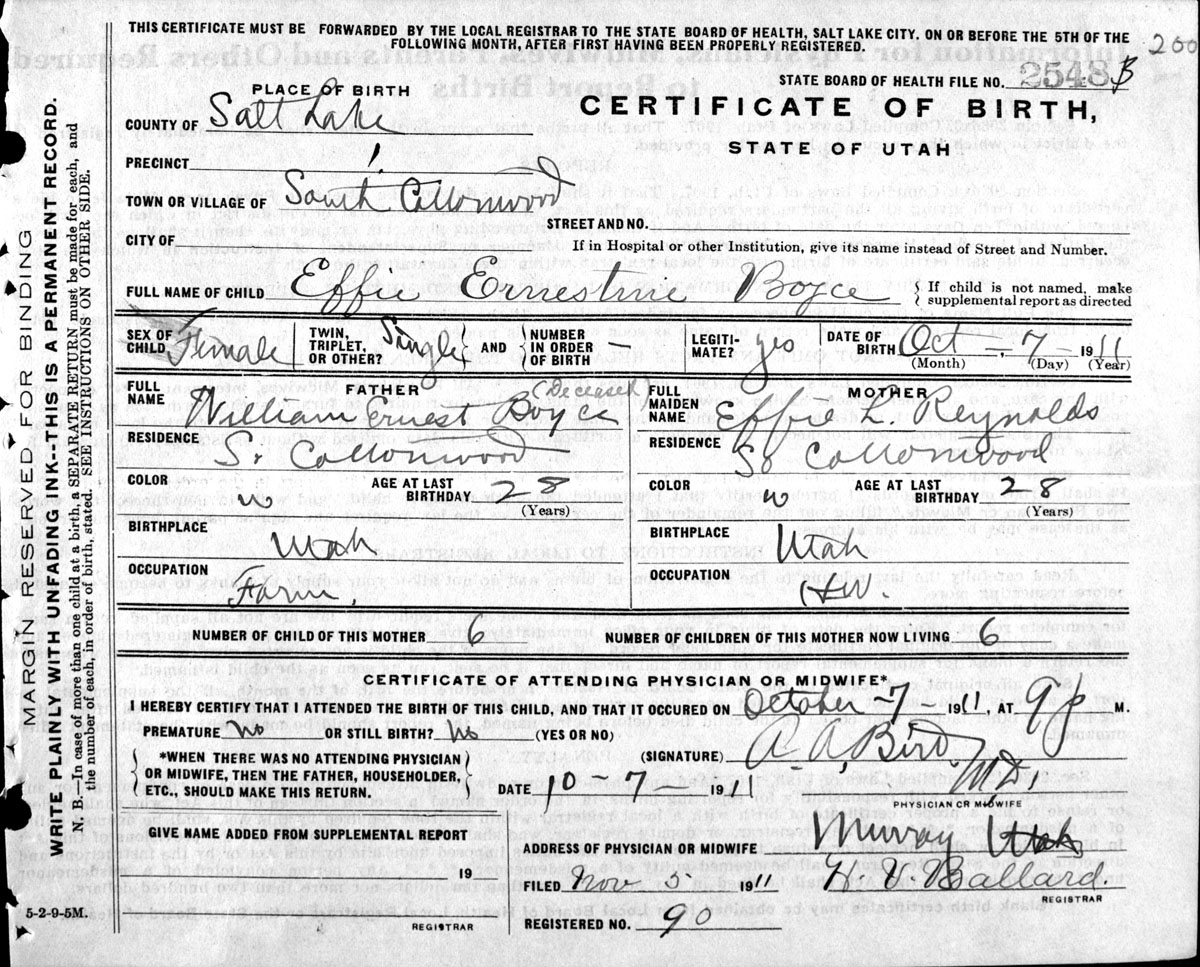 THIS CERTIFICATE MUST BE FORWARDED BY THE LOCAL REGISTRAR TO THE STATE BOARD OF HEALTH, SALT LAKE CITY, ON OR BEFORE THE 5TH OF THE
FOLLOWING MONTH, AFTER FIRST HAVING BEEN PROPERLY REGISTERED.
200
STATE BOARD OF HEALTH FILE NO. 2548 B
PLACE OF BIRTH
CERTIFICATE OF BIRTH,
STATE OF UTAH
COUNTY OF Salt Lake
PRECINCT 1
TOWN OR VILLAGE OF South Cottonwood
STREET AND NO.
CITY OF
If in Hospital or other Institution, give its name instead of Street and Number.
FULL NAME OF CHILD Effie Ernestine Boyce
If child is not named, make
supplemental report as directed
SEX OF CHILD Female
TWIN, TRIPLET, OR OTHER? Single
AND NUMBER IN ORDER OF BIRTH —
LEGITIMATE? yes
DATE OF BIRTH Oct — 7 — 1911
(Month) (Day) (Year)
FATHER
FULL NAME William Ernest Boyce (Deceased)
RESIDENCE So Cottonwood
COLOR w
AGE AT LAST BIRTHDAY 28
(Years)
BIRTHPLACE Utah
OCCUPATION Farm.
MOTHER
FULL MAIDEN NAME Effie L. Reynolds
RESIDENCE So Cottonwood
COLOR w
AGE AT LAST BIRTHDAY 28
(Years)
BIRTHPLACE Utah
OCCUPATION HW.
NUMBER OF CHILD OF THIS MOTHER 6
NUMBER OF CHILDREN OF THIS MOTHER NOW LIVING 6
CERTIFICATE OF ATTENDING PHYSICIAN OR MIDWIFE*
I HEREBY CERTIFY THAT I ATTENDED THE BIRTH OF THIS CHILD, AND THAT IT OCCURED ON October - 7 - 1911, AT 9 p M.
PREMATURE no OR STILL BIRTH? no (YES OR NO)
*WHEN THERE WAS NO ATTENDING PHYSICIAN
OR MIDWIFE, THEN THE FATHER, HOUSEHOLDER,
ETC., SHOULD MAKE THIS RETURN.
(SIGNATURE) A. A. Bird
M.D.
PHYSICIAN OR MIDWIFE
DATE 10 - 7 - 1911
GIVE NAME ADDED FROM SUPPLEMENTAL REPORT
19
REGISTRAR
ADDRESS OF PHYSICIAN OR MIDWIFE Murray Utah
FILED Nov 5 1911 Ballard.
REGISTRAR
REGISTERED NO. 90
MARGIN RESERVED FOR BINDING
WRITE PLAINLY WITH UNFADING INK--THIS IS A PERMANENT RECORD.
N. B.—In case of more than one child at a birth, a SEPARATE RETURN must be made for each, and
the number of each, in order of birth, stated. SEE INSTRUCTIONS ON OTHER SIDE.
5-2-9-5M.